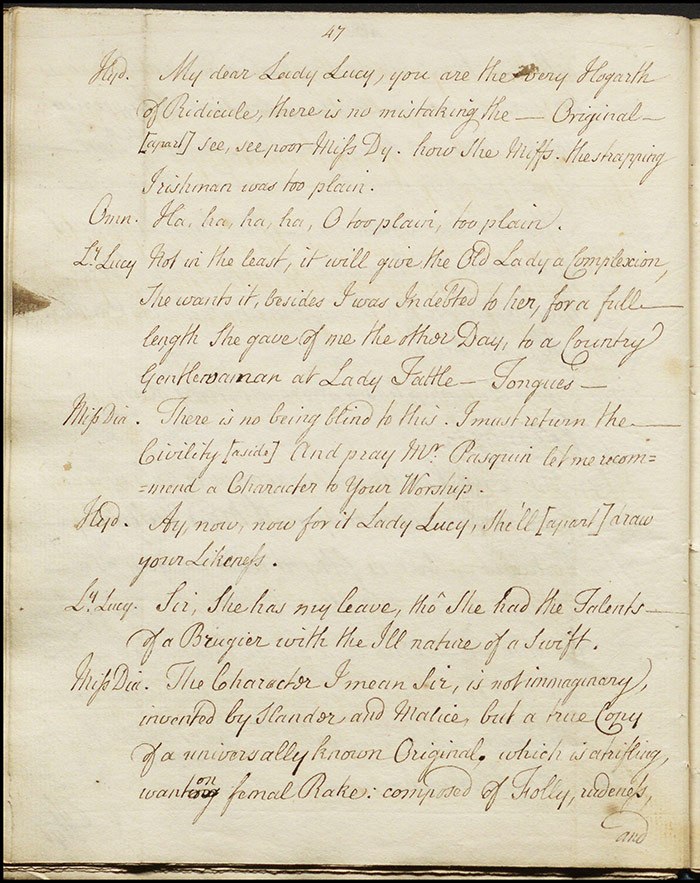 47
Hyd. My dear Lady Lucy, you are the very Hogarth
of Ridicule, there is no mistaking the — Original —
[apart] see, see poor Miss Dy. how She Miffs. the strapping
Irishman was too plain.
Omn. Ha, ha, ha, ha, O too plain, too plain.
Ly. Lucy Not in the least, it will give the Old Lady a Complexion,
She wants it, besides I was Indebted to her, for a full —
length She gave of me the other Day, to a Country
Gentlewaman at Lady Tattle — Tongues —
Miss Dia. There is no being blind to this. I must return the —
Civility [aside] And pray Mr. Pasquin let me recom=
=mend a Character to Your Worship.
Hyd. Ay, now, now for it Lady Lucy, She'll [apart] draw
your Likeness.
Ly. Lucy. Sir, She has my leave, tho' She had the Talents —
of a Brugier with the Ill nature of a Swift.
Miss Dia. The Character I mean Sir, is not immaginary,
invented by Slander and Malice, but a true Copy
of a universally known Original. which is a trifling,
wanton femal Rake: composed of Folly, rudeness,
and